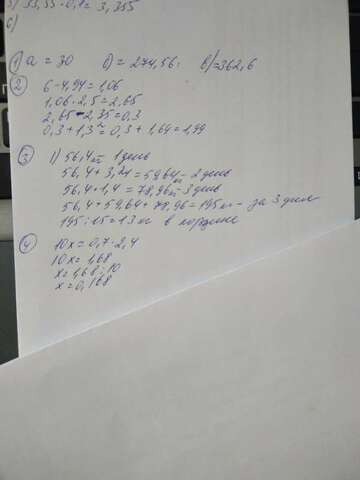 5) 33,55 · 0,1 = 3,355
6)
1 a = 30 б) = 274,56. в) = 362,6
2 6 - 4,94 = 1,06
1,06 · 2,5 = 2,65
2,65 - 2,35 = 0,3
0,3 + 1,3² = 0,3 + 1,69 = 1,99
3 1) 56,4 кг 1 день
56,4 + 3,24 = 59,64 кг - 2 день
56,4 · 1,4 = 78,96 кг - 3 день
56,4 + 59,64 + 78,96 = 195 кг - за 3 дня
195 : 15 = 13 кг в корзине
4 10x = 0,7 · 2,4
10x = 1,68
x = 1,68 : 10
x = 0,168